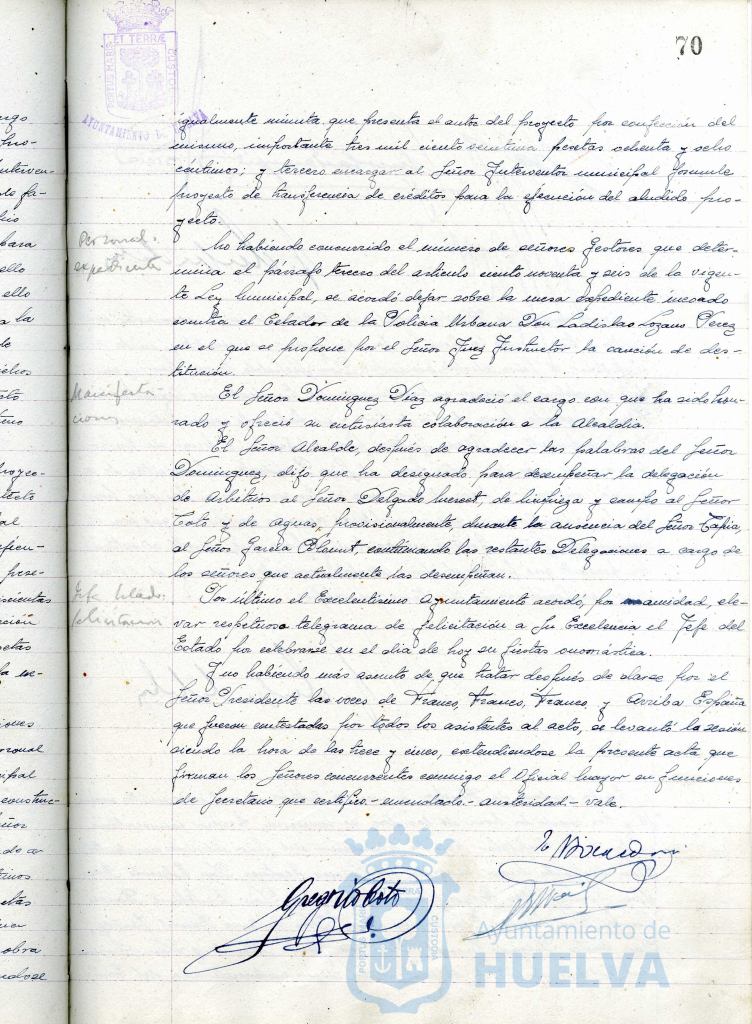 70
PORTUS MARIS ET TERRÆ CUSTODIA
AYUNTAMIENTO
igualmente minuta que presenta el autor del proyecto por confección del
mismo, importante tres mil ciento veintiuna pesetas ochenta y ocho
céntimos; y tercero encargar al Señor Interventor municipal formule
proyecto de transferencia de créditos para la ejecución del aludido pro-
yecto.
Personal.
expediente
No habiendo concurrido el número de señores Gestores que deter-
mina el párrafo tercero del artículo ciento noventa y seis de la vigen-
te Ley Municipal, se acordó dejar sobre la mesa expediente incoado
contra el Celador de la Policia Urbana Don Ladislao Lozano Perez
en el que se propone por el Señor Juez Instructor la sanción de des-
titución.
Manifesta-
ciones
El Señor Dominguez Diaz agradeció el cargo con que ha sido hon-
rado y ofreció su entusiasta colaboración a la Alcaldia.
El Señor Alcalde, después de agradecer las palabras del Señor
Dominguez, dijo que ha designado para desempeñar la delegación
de Arbitrios al Señor Delgado, de limpieza y campo al Señor
Coto y de aguas, provisionalmente, durante la ausencia del Señor Tapia,
al Señor Garcia, continuando las restantes Delegaciones a cargo de
los señores que actualmente las desempeñan.
Jefe Estado.
felicitación
Por último el Excelentisimo Ayuntamiento acordó, por unanimidad, ele-
var respetuoso telegrama de felicitación a Su Excelencia el Jefe del
Estado por celebrarse en el dia de hoy su fiesta onomástica.
Y no habiendo más asunto de que tratar después de darse por el
Señor Presidente las voces de Franco, Franco, Franco y Arriba España
que fueron contestadas por todos los asistentes al acto, se levantó la sesión
siendo la hora de las trece y cinco, extendiendose la presente acta que
firman los Señores concurrentes conmigo el Oficial Mayor en funciones
de Secretario que certifico.- enmendado.- austeridad - vale.
Gregorio Coto
Ayuntamiento de
HUELVA